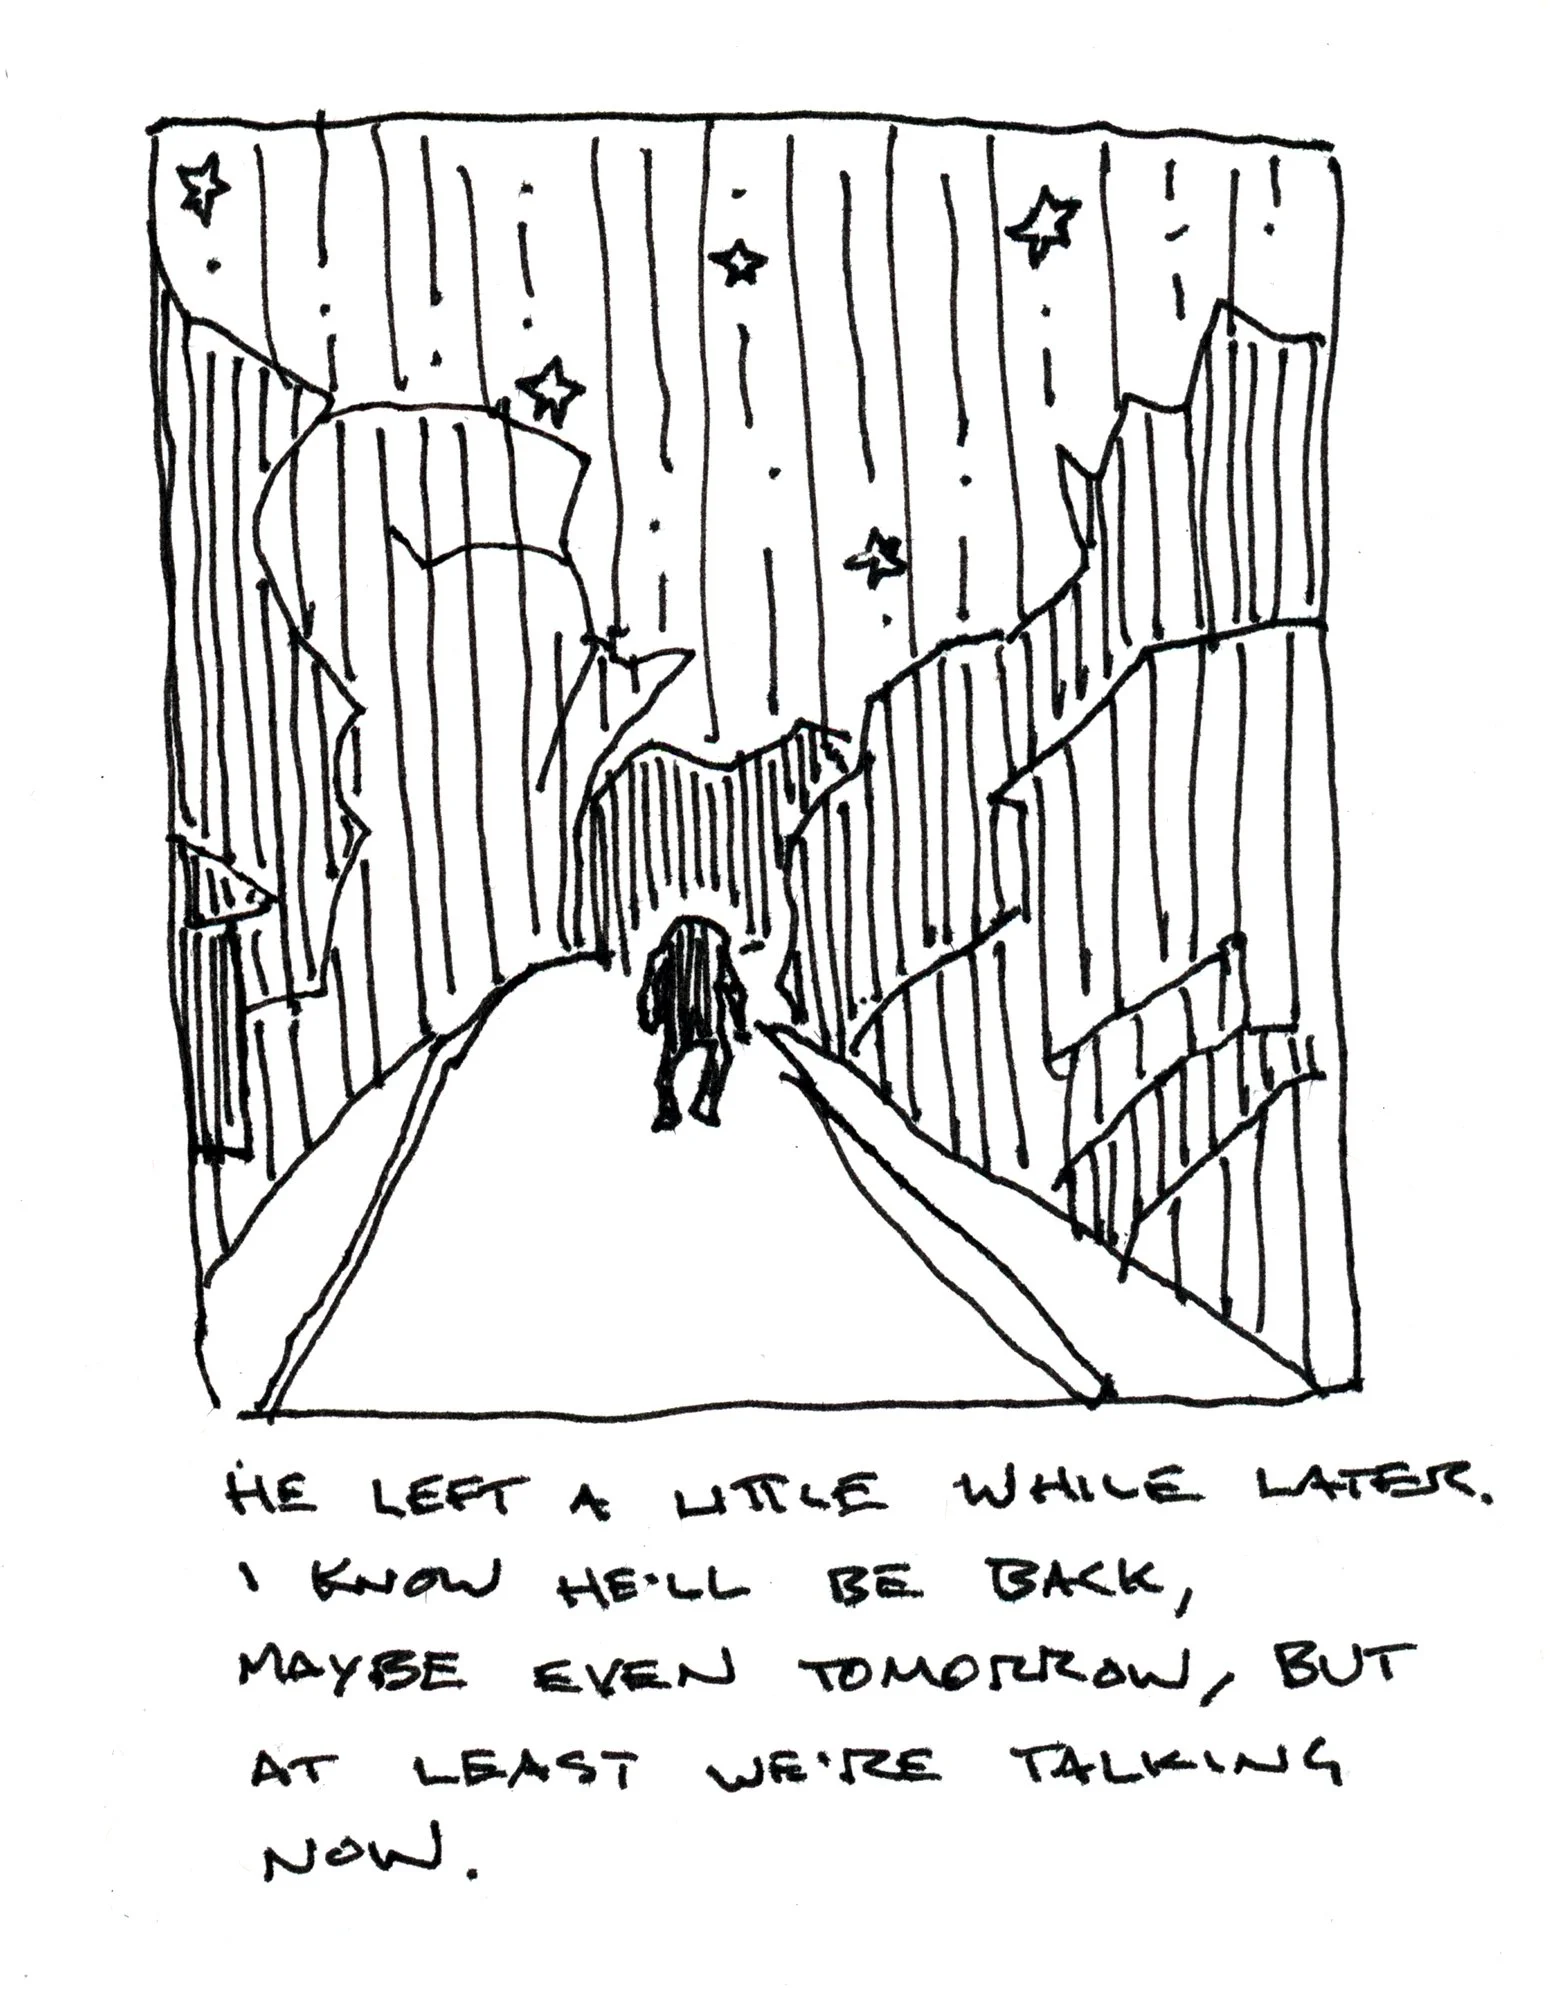 HE LEFT A LITTLE WHILE LATER.
I KNOW HE'LL BE BACK,
MAYBE EVEN TOMORROW, BUT
AT LEAST WE'RE TALKING
NOW.